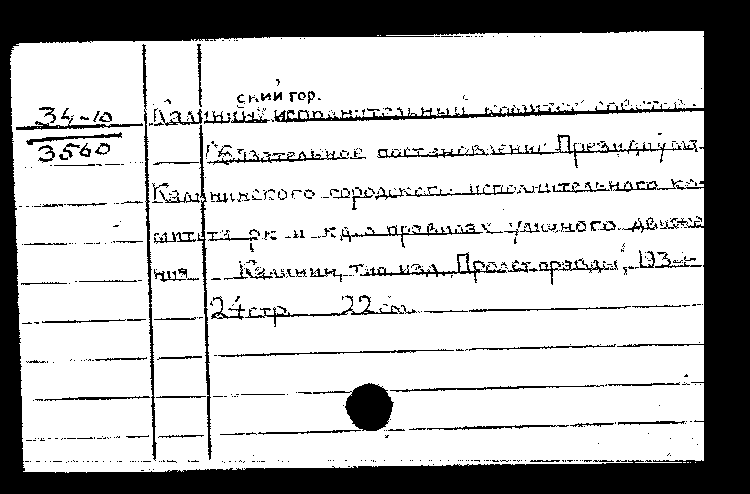 ский гор.
34-10 Калинин исполнительный комитет советов.
3560 Обязательное постановление Президиума
Калининского городского исполнительного ко-
митета рк и кд о правилах уличного движе
ния Калинин, тип. изд. „Пролет. правды",
24 стр. 22 см.